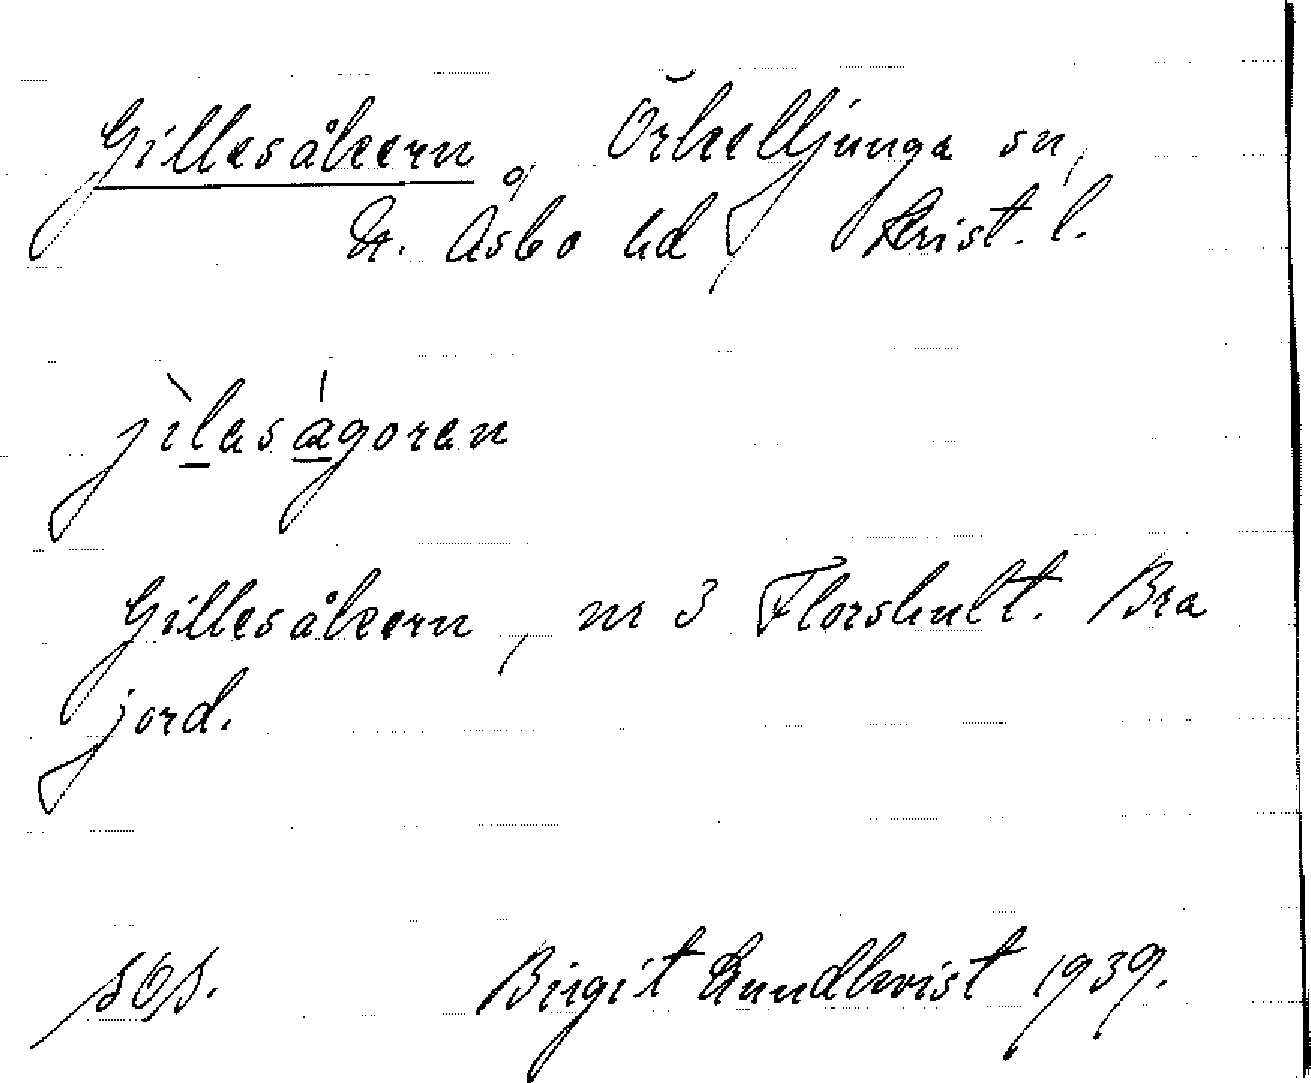 Gillesåkern, Örkelljunga sn,
N. Åsbo hd Krist. l.
jìlaságoran
Gillesåkern, nr 3 Florshult. Bra
jord.
Birgit Lundkvist 1939.